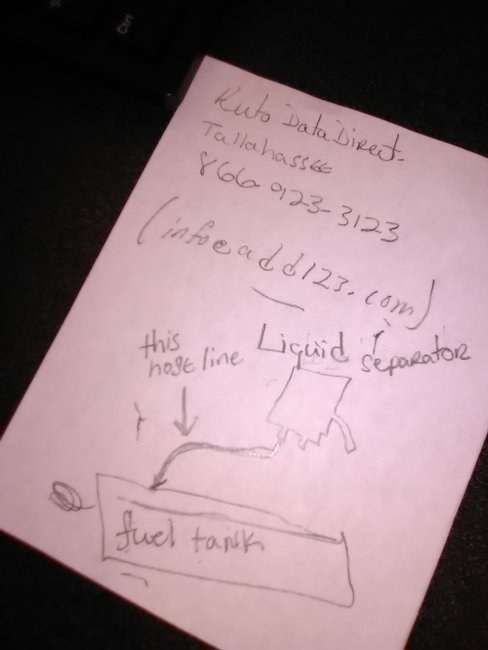 Auto DataDirect.
Tallahassee
866-923-3123
(info@add123.com)
Liquid separator
this
hose line
fuel tank